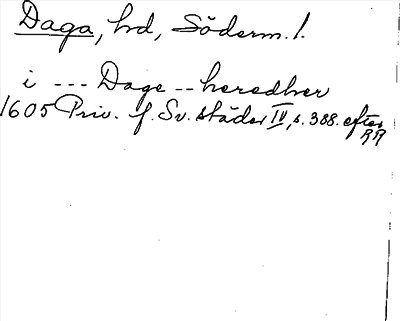 Daga, hrd, Söderm. l.
i --- Dage -- heredher
1605 Priv. f. Sv. städer IV, s. 388. efter
RR